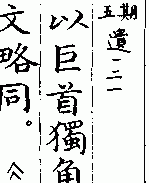 五期
遺一二一
以巨首獨角
文略同。《